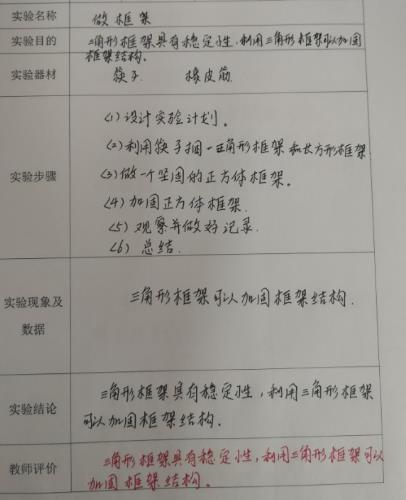 实验名称 做框架
实验目的 三角形框架具有稳定性,利用三角形框架可以加固
框架结构。
实验器材 筷子 橡皮筋
实验步骤
(1)设计实验计划。
(2)利用筷子捆一三角形框架和长方形框架
(3)做一个坚固的正方体框架。
(4)加固正方体框架.
(5)观察并做好记录.
(6)总结.
实验现象及
数据
三角形框架可以加固框架结构.
实验结论
三角形框架具有稳定性,利用三角形框架
可以加固框架结构.
教师评价
三角形框架具有稳定性,利用三角形框架可以
加固框架结构。